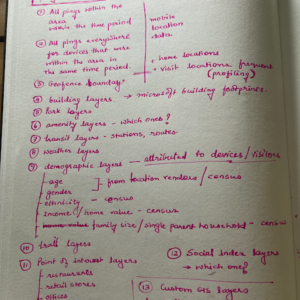 ① All pings within the area within the time period
mobile location data
② All pings everywhere for devices that were within the area in the same time period.
• home locations
• visit locations frequent (profiling)
③ Geofence boundary
④ building layers → microsoft building footprints.
⑤ Park layers
⑥ amenity layers - which ones?
⑦ transit layers - stations, routes
⑧ weather layers
⑨ demographic layers → attributed to devices/visitors
- age
- gender
from location vendors/census
- ethnicity - census
- Income/home value - census
- family size/single parent household - census
⑩ trail layers
⑪ Point of interest layers
- restaurants
- retail stores
- offices
⑫ Social Index layers
→ which one?
⑬ Custom GIS layers